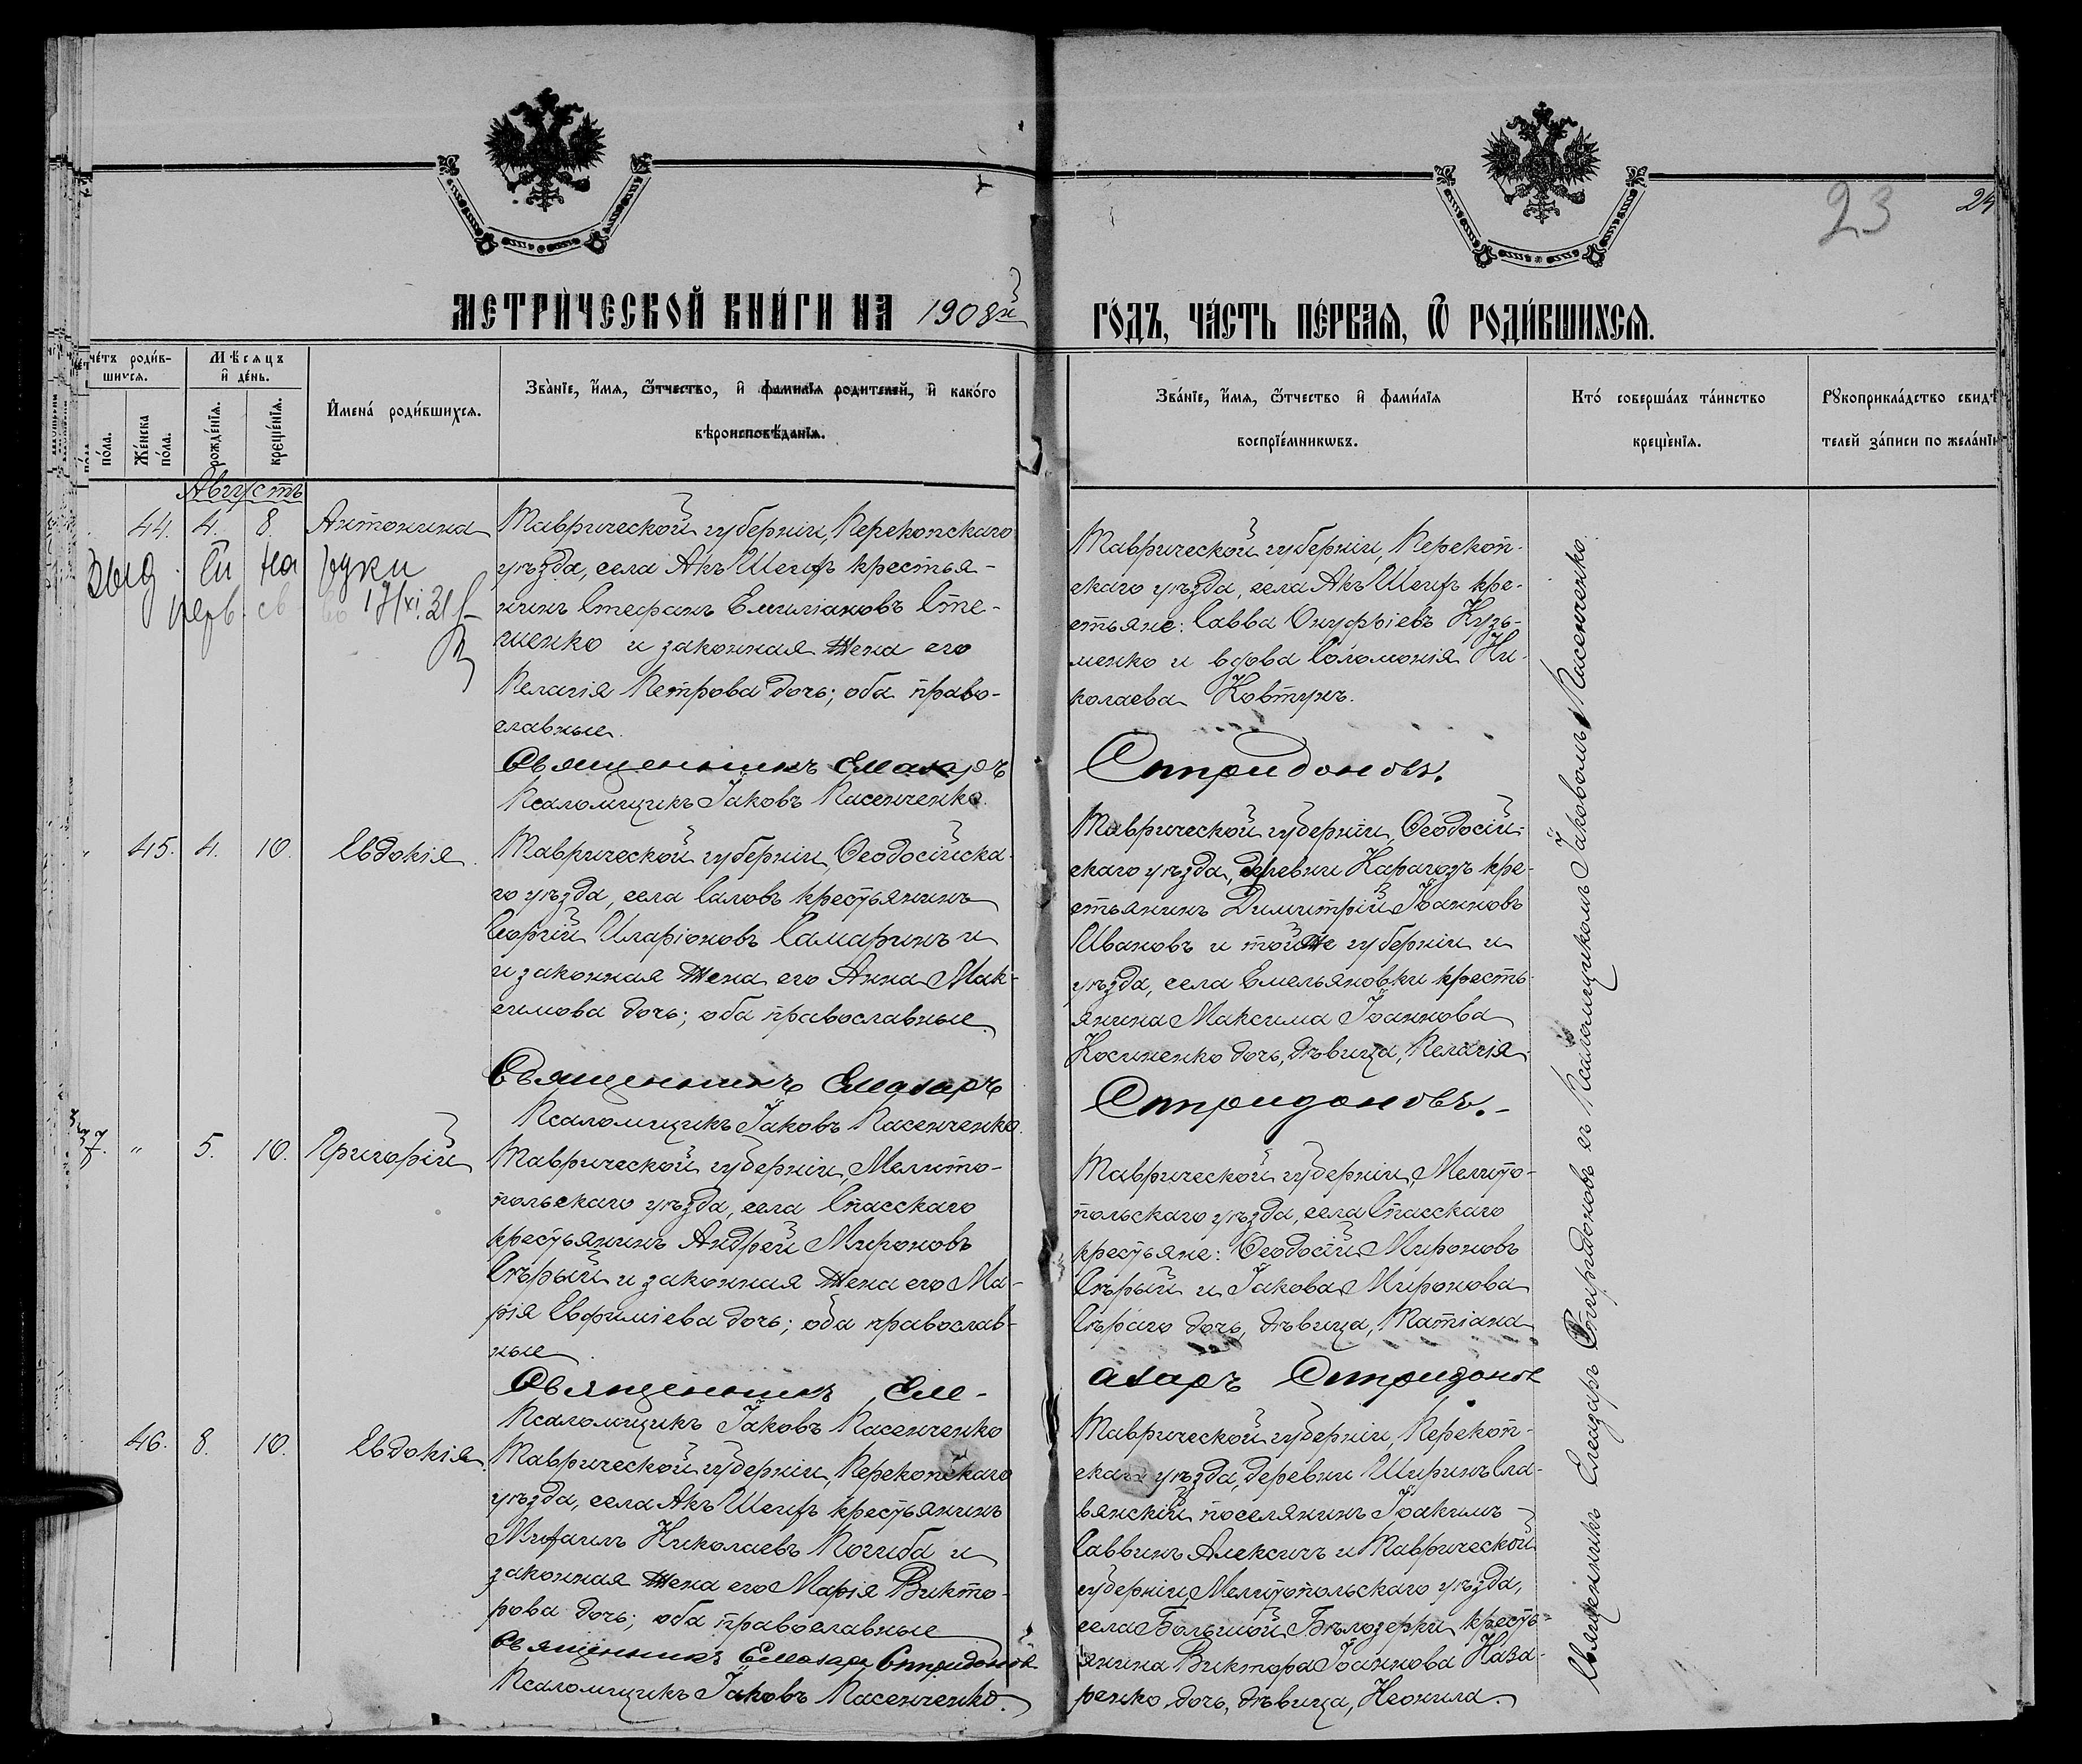 23
24
МЕТРИЧЕСКОЙ КНИГИ НА 1908й
ГОДЪ, ЧАСТЬ ПЕРВАЯ, Ѿ РОДИВШИХСЯ.
Счетъ родив-
шихся.
Мѣсяцъ
и день.
пола.
Женска
пола.
рожденїя.
крещенїя.
Имена родившихся.
Званїе, имя, ѿтчество, и фамилїя родителей, и какого
вѣроисповѣданїя.
Званїе, имя, ѿтчество и фамилїя
воспрїемникѡвъ.
Кто совершалъ таинство
крещенїя.
Рукоприкладство свидѣ
телей записи по желанїю
Августъ
44. 4. 8. Антонина
Таврической губерніи, Перекопскаго
уѣзда, села Акъ Шеихъ крестья-
нинъ Стефанъ Емиліановъ Сте-
ценко и законная жена его
Пелагія Петрова дочь; оба право-
славные.
Священникъ Елеазаръ
Псаломщикъ Іаковъ Пасенченко.
Таврической губерніи, Перекоп-
скаго уѣзда, села Акъ Шеихъ кре-
стьяне: Савва Онуфріевъ Кузь-
менко и вдова Соломонія Ни-
колаева Ковтунъ.
Спиридоновъ.
45. 4. 10. Евдокія
Таврической губерніи, Ѳеодосійска-
го уѣзда, села Саловъ крестьянинъ
Георгій Иларіоновъ Самаринъ и
и законная жена его Анна Мак-
симова дочь; оба православные.
Священникъ Елеазаръ
Псаломщикъ Іаковъ Пасенченко.
Таврической губерніи, Ѳеодосій-
скаго уѣзда, деревни Карагозъ кре-
стьянинъ Димитрій Іоанновъ
Ивановъ и той же губерніи и
уѣзда, села Емельяновки кресть-
янина Максима Іоаннова
Косиненко дочь, дѣвица, Пелагія.
Спиридоновъ.-
37. " 5. 10. Григорій
Таврической губерніи, Мелито-
польскаго уѣзда, села Спасскаго
крестьянинъ Андрей Мироновъ
Сѣрый и законная жена его Ма-
рія Евфиміева дочь; оба православ-
ные
Священникъ Еле-
Псаломщикъ Іаковъ Пасенченко
Таврической губерніи, Мелито-
польскаго уѣзда, села Спасскаго
крестьяне: Ѳеодосій Мироновъ
Сѣрый и Іакова Миронова
Сѣраго дочь, дѣвица, Татіана
азаръ Спиридоновъ
46. 8. 10. Евдокія.
Таврической губерніи, Перекопскаго
уѣзда, села Акъ Шеихъ крестьянинъ
Михаилъ Николаевъ Погиба и
законная жена его Марія Викто-
рова дочь; оба православные
Священникъ Елеазаръ Спиридоновъ
Псаломщикъ Іаковъ Пасенченко.
Таврической губерніи, Перекоп-
скаго уѣзда, деревни Ширинъ сла-
вянскій поселянинъ Іоакимъ
Саввинъ Алексичъ и Таврической
губерніи, Мелитопольскаго уѣзда,
села Большой Бѣлозерки кресть-
янина Виктора Іоаннова Наза-
ренко дочь, дѣвица, Неонила
Священникъ Елеазаръ Спиридоновъ съ Псаломщикомъ Іаковомъ Пасенченко.